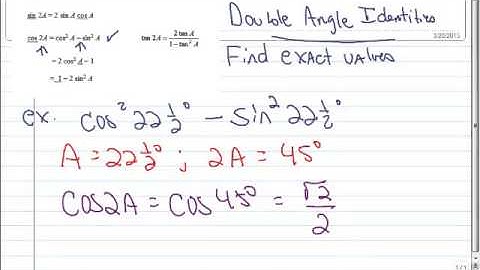 sin 2A = 2 sin A cos A
cos 2A = cos² A − sin² A ✓
= 2 cos² A − 1
= 1 − 2 sin² A
tan 2A = 2 tan A / 1 − tan² A
Double Angle Identities
3/20/2013
Find exact values
ex. cos² 22 1/2° − sin² 22 1/2°
A = 22 1/2° ; 2A = 45°
cos 2A = cos 45° = √2/2
1/1